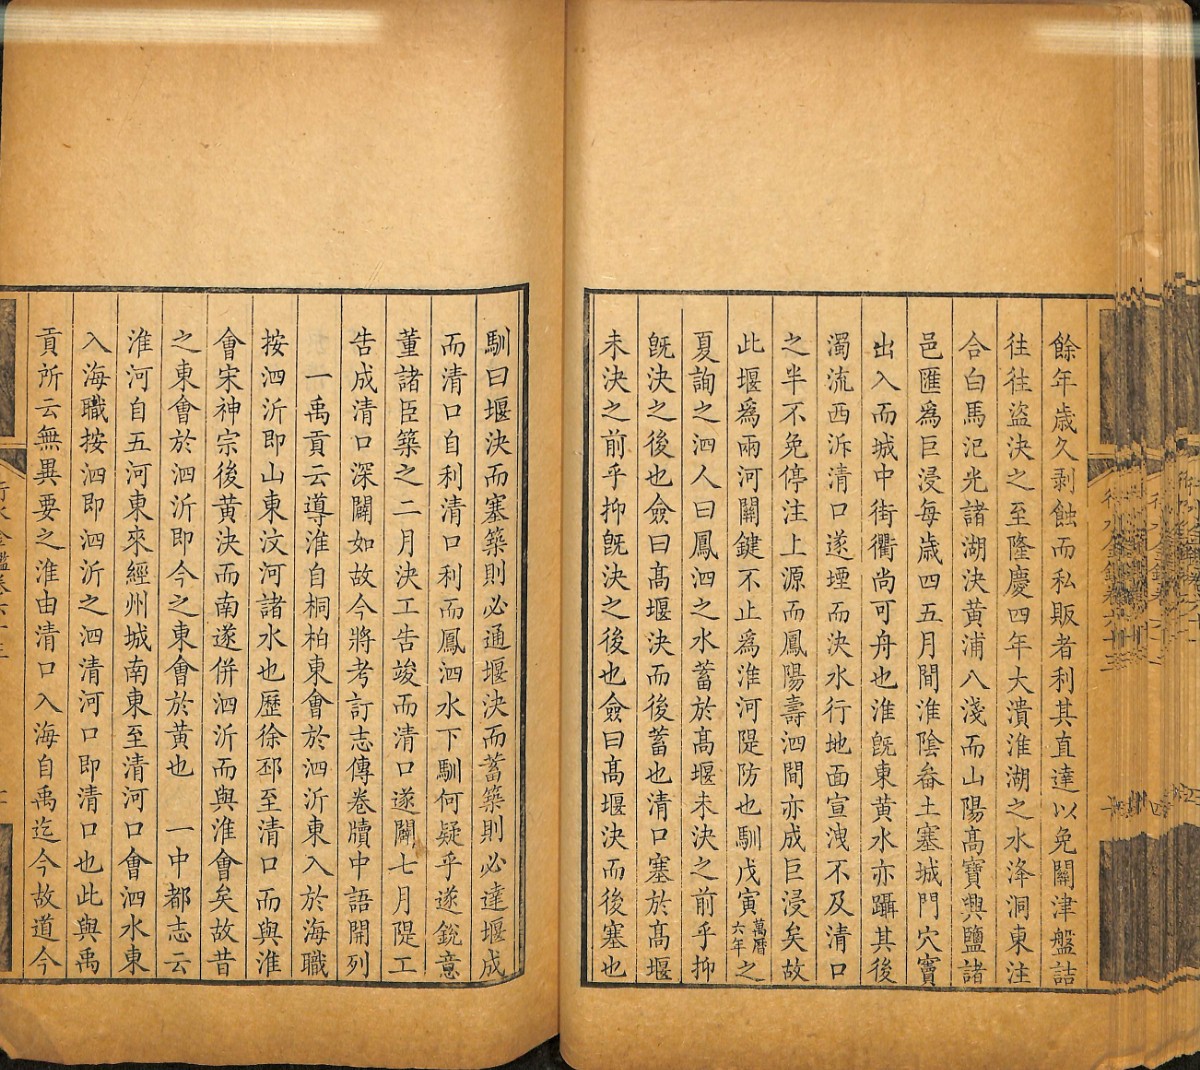 餘年歲久剥蝕而私販者利其直達以免關津盤詰
往往盗決之至隆慶四年大潰淮湖之水洚洞東注
合白馬氾光諸湖決黃浦八淺而山陽髙寶興鹽諸
邑匯爲巨浸每歲四五月間淮陰畚土塞城門穴竇
出入而城中街衢尚可舟也淮旣東黃水亦躡其後
濁流西泝清口遂堙而決水行地面宣洩不及清口
之半不免停注上源而鳳陽壽泗間亦成巨浸矣故
此堰爲兩河關鍵不止爲淮河隄防也馴戊寅萬曆六年之
夏詢之泗人曰鳳泗之水蓄於髙堰未決之前乎抑
旣決之後也僉曰髙堰決而後蓄也清口塞於髙堰
未決之前乎抑旣決之後也僉曰髙堰決而後塞也
馴曰堰決而塞築則必通堰決而蓄築則必達堰成
而清口自利清口利而鳳泗水下馴何疑乎遂銳意
董諸臣築之二月決工告竣而清口遂闢七月隄工
告成清口深闊如故今將考訂志傳卷牘中語開列
一禹貢云導淮自桐柏東會於泗沂東入於海職
按泗沂即山東汶河諸水也歷徐邳至清口而與淮
會宋神宗後黃決而南遂併泗沂而與淮會矣故昔
之東會於泗沂即今之東會於黃也　一中都志云
淮河自五河東來經州城南東至清河口會泗水東
入海職按泗即泗沂之泗清河口即清口也此與禹
貢所云無異要之淮由清口入海自禹迄今故道今
行水金鑑卷六十三